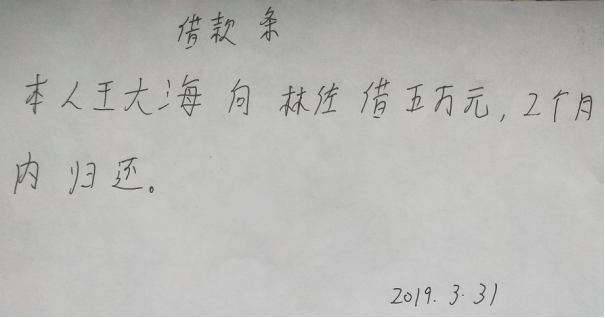 借款条
本人王大海向林佐借五万元，2个月
内归还。
2019.3.31